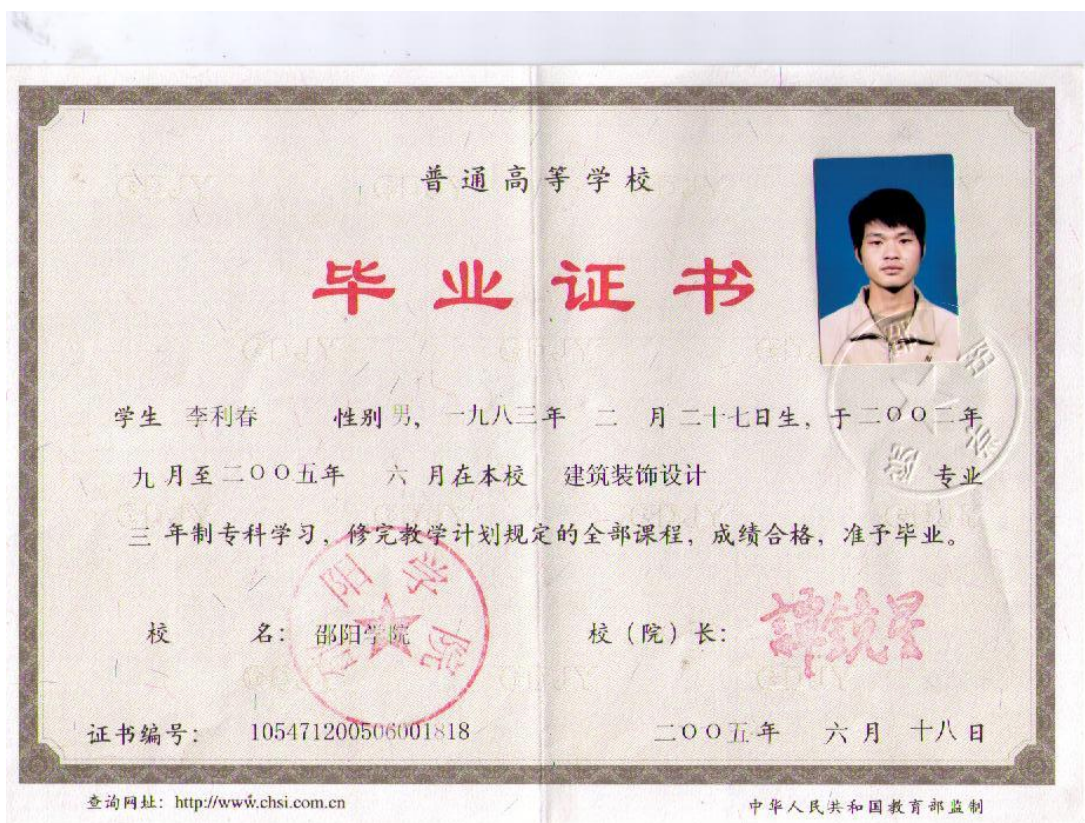 普通高等学校
毕业证书
学生 李利春 性别 男, 一九八三年 二 月 二十七日生, 于二〇〇二年
九 月至 二〇〇五年 六 月在本校 建筑装饰设计 专业
三 年制专科学习, 修完教学计划规定的全部课程, 成绩合格, 准予毕业。
校 名: 邵阳学院 校(院)长: 譚鏡星
证书编号: 105471200506001818 二〇〇五年 六 月 十八 日
查询网址: http://www.chsi.com.cn 中华人民共和国教育部监制